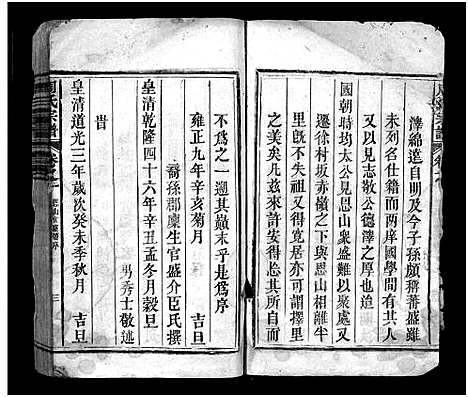 澤綿遠自明及今子孫頗稱蕃盛雖
未列名仕籍而兩庠國學間有其人
又足以志敬公德澤之厚也迨
國朝時均太公見思山衆盛難以聚處又
遷徐村坂赤嶺之下與思山相離半
里許不失祖又得寛居亦可謂擇里
之美矣凡兹來許安得忘其所自而
不為之一遡其巔末乎是為序
雍正九年辛亥菊月 吉旦
裔孫郡廩生官盛介臣氏撰
皇清乾隆四十六年辛丑孟冬月榖旦
男秀士敬述
昔
皇清道光三年歲次癸未季秋月 吉旦
周氏宗譜
三